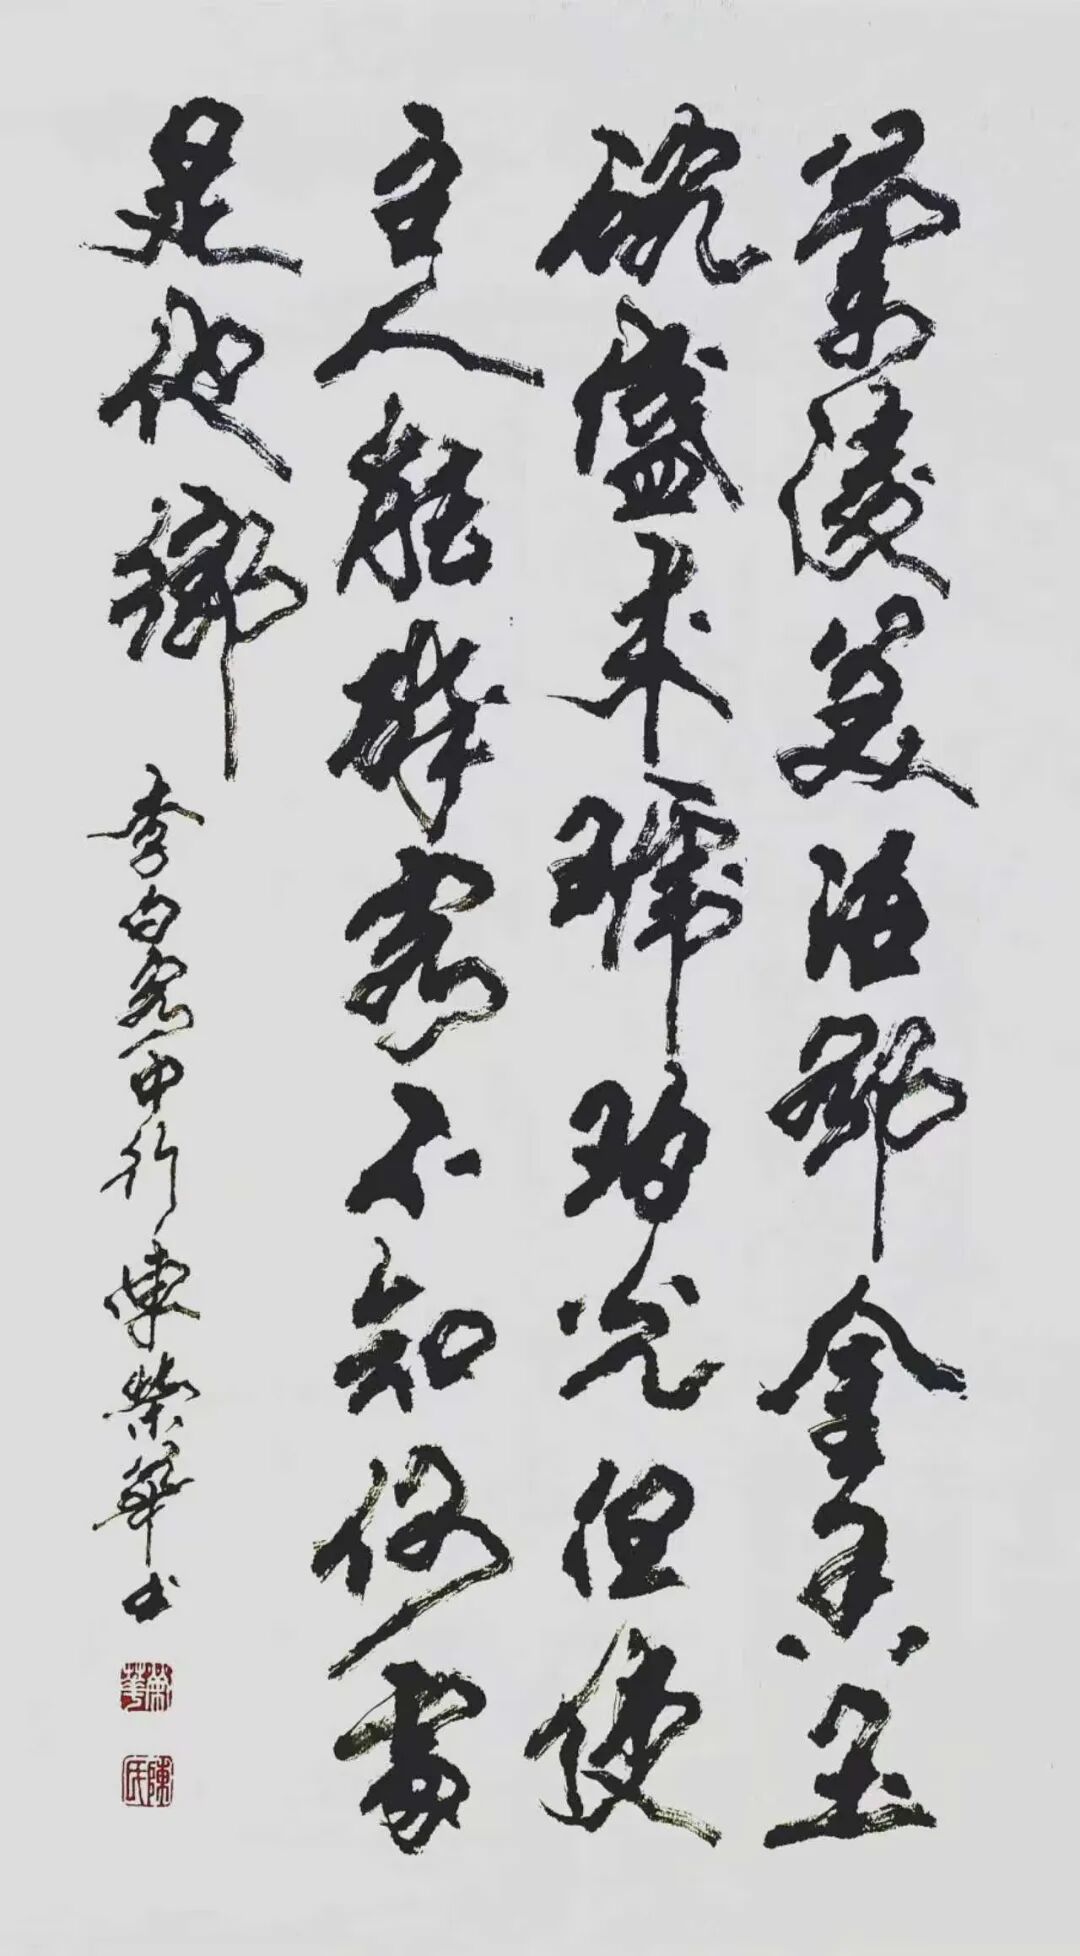 蘭陵美酒郁金香玉
碗盛来琥珀光但使
主人能醉客不知何處
是他鄉
李白客中行 陳榮華书
榮華
陳氏